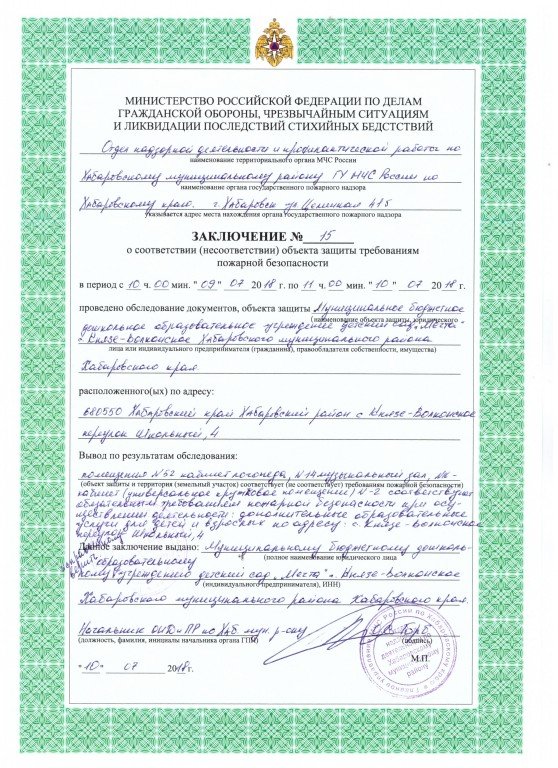 МИНИСТЕРСТВО РОССИЙСКОЙ ФЕДЕРАЦИИ ПО ДЕЛАМ
ГРАЖДАНСКОЙ ОБОРОНЫ, ЧРЕЗВЫЧАЙНЫМ СИТУАЦИЯМ
И ЛИКВИДАЦИИ ПОСЛЕДСТВИЙ СТИХИЙНЫХ БЕДСТВИЙ
Отдел надзорной деятельности и профилактической работы по
наименование территориального органа МЧС России
Хабаровскому муниципальному району ГУ МЧС России по
наименование органа государственного пожарного надзора
Хабаровскому краю. г. Хабаровск ул Целинная 415
указывается адрес места нахождения органа государственного пожарного надзора
ЗАКЛЮЧЕНИЕ № 15
о соответствии (несоответствии) объекта защиты требованиям
пожарной безопасности
в период с 10 ч. 00 мин. "09" 07 2018 г. по 11 ч. 00 мин. "10" 07 2018 г.
проведено обследование документов, объекта защиты Муниципальное бюджетное
(наименование объекта защиты, юридического
дошкольное образовательное учреждение детский сад
с. Князе-Волконское Хабаровского муниципального района
лица или индивидуального предпринимателя (гражданина), правообладателя собственности, имущества)
Хабаровского края
расположенного(ых) по адресу:
680550 Хабаровский край Хабаровский район с Князе-Волконское
переулок Школьный, 4
Вывод по результатам обследования:
помещения №52 кабинет логопеда, №14 музыкальный зал,
(объект защиты и территория (земельный участок) соответствует (не соответствует) требованиям пожарной безопасности)
кабинет (универсальное кружковое помещение) соответствуют
обязательным требованиям пожарной безопасности при осу-
ществлении деятельности: дополнительные образовательные
услуги для детей и взрослых по адресу: с. Князе-Волконское
переулок Школьный, 4
Данное заключение выдано: Муниципальному бюджетному дошколь-
(полное наименование юридического лица
образовательному
ному учреждению детский сад с. Князе-Волконское
(индивидуального предпринимателя), ИНН)
Хабаровского муниципального района Хабаровского края.
Начальник ОНДиПР по Хаб мун. р-ону
(должность, фамилия, инициалы начальника органа ГПН)
(подпись)
М.П.
"10" 07 2018г.